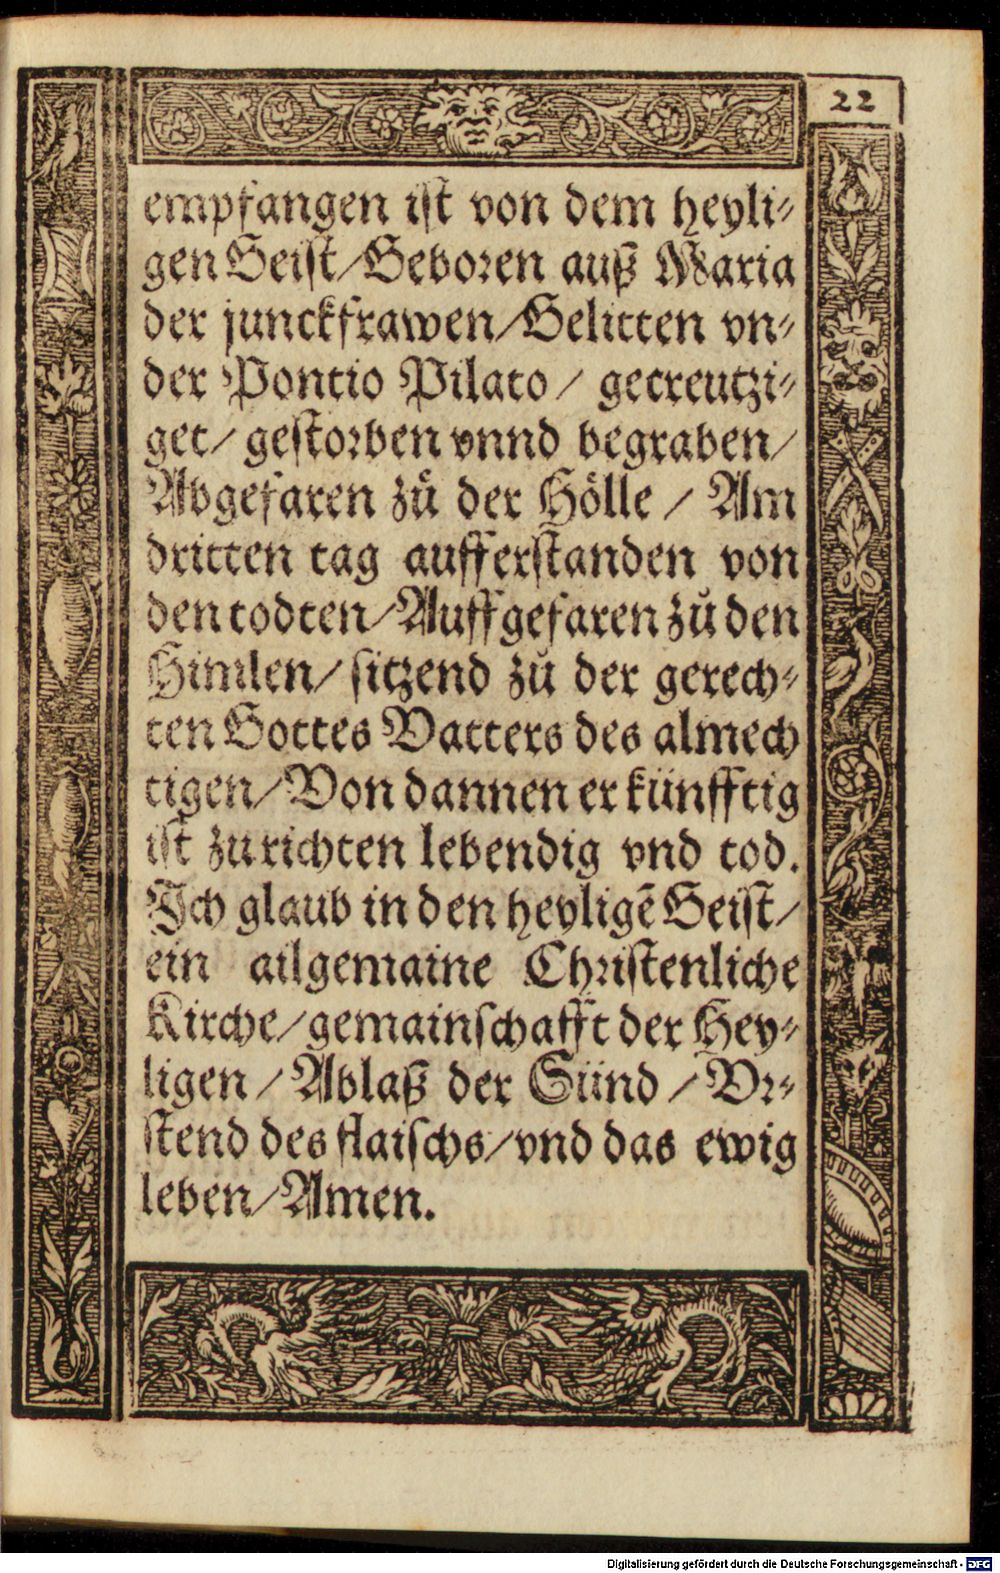 22
empfangen ist von dem heyli⸗
gen Geist/Geboren auß Maria
der junckfrawen/Gelitten vn⸗
der Pontio Pilato / gecreutzi⸗
get/ gestorben vnnd begraben/
Abgefaren zuͦ der Hoͤlle / Am
dritten tag aufferstanden von
den todten/Auffgefaren zuͦ den
Himlen/ sitzend zuͦ der gerech⸗
ten Gottes Vatters des almech
tigen/Von dannen er künfftig
ist zu richten lebendig vnd tod.
Ich glaub in den heyligẽ Geist/
ein allgemaine Christenliche
Kirche/gemainschafft der Hey⸗
ligen / Ablaß der Sünd / Vr⸗
stend des flaischs/vnd das ewig
leben/Amen.
Digitalisierung gefördert durch die Deutsche Forschungsgemeinschaft - DFG